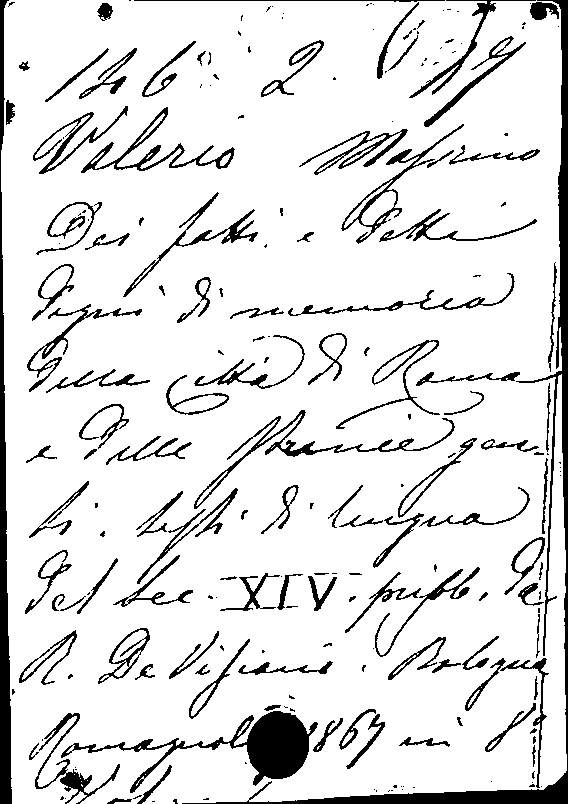 146 2. 17
Valerio Massimo
Dei fatti e detti
degni di memoria
della città di Roma
e delle stranie gen-
ti. testi di lingua
del sec. XIV. pubb. da
R. De Visiani. Bologna
Romagnoli 1867 in 8°